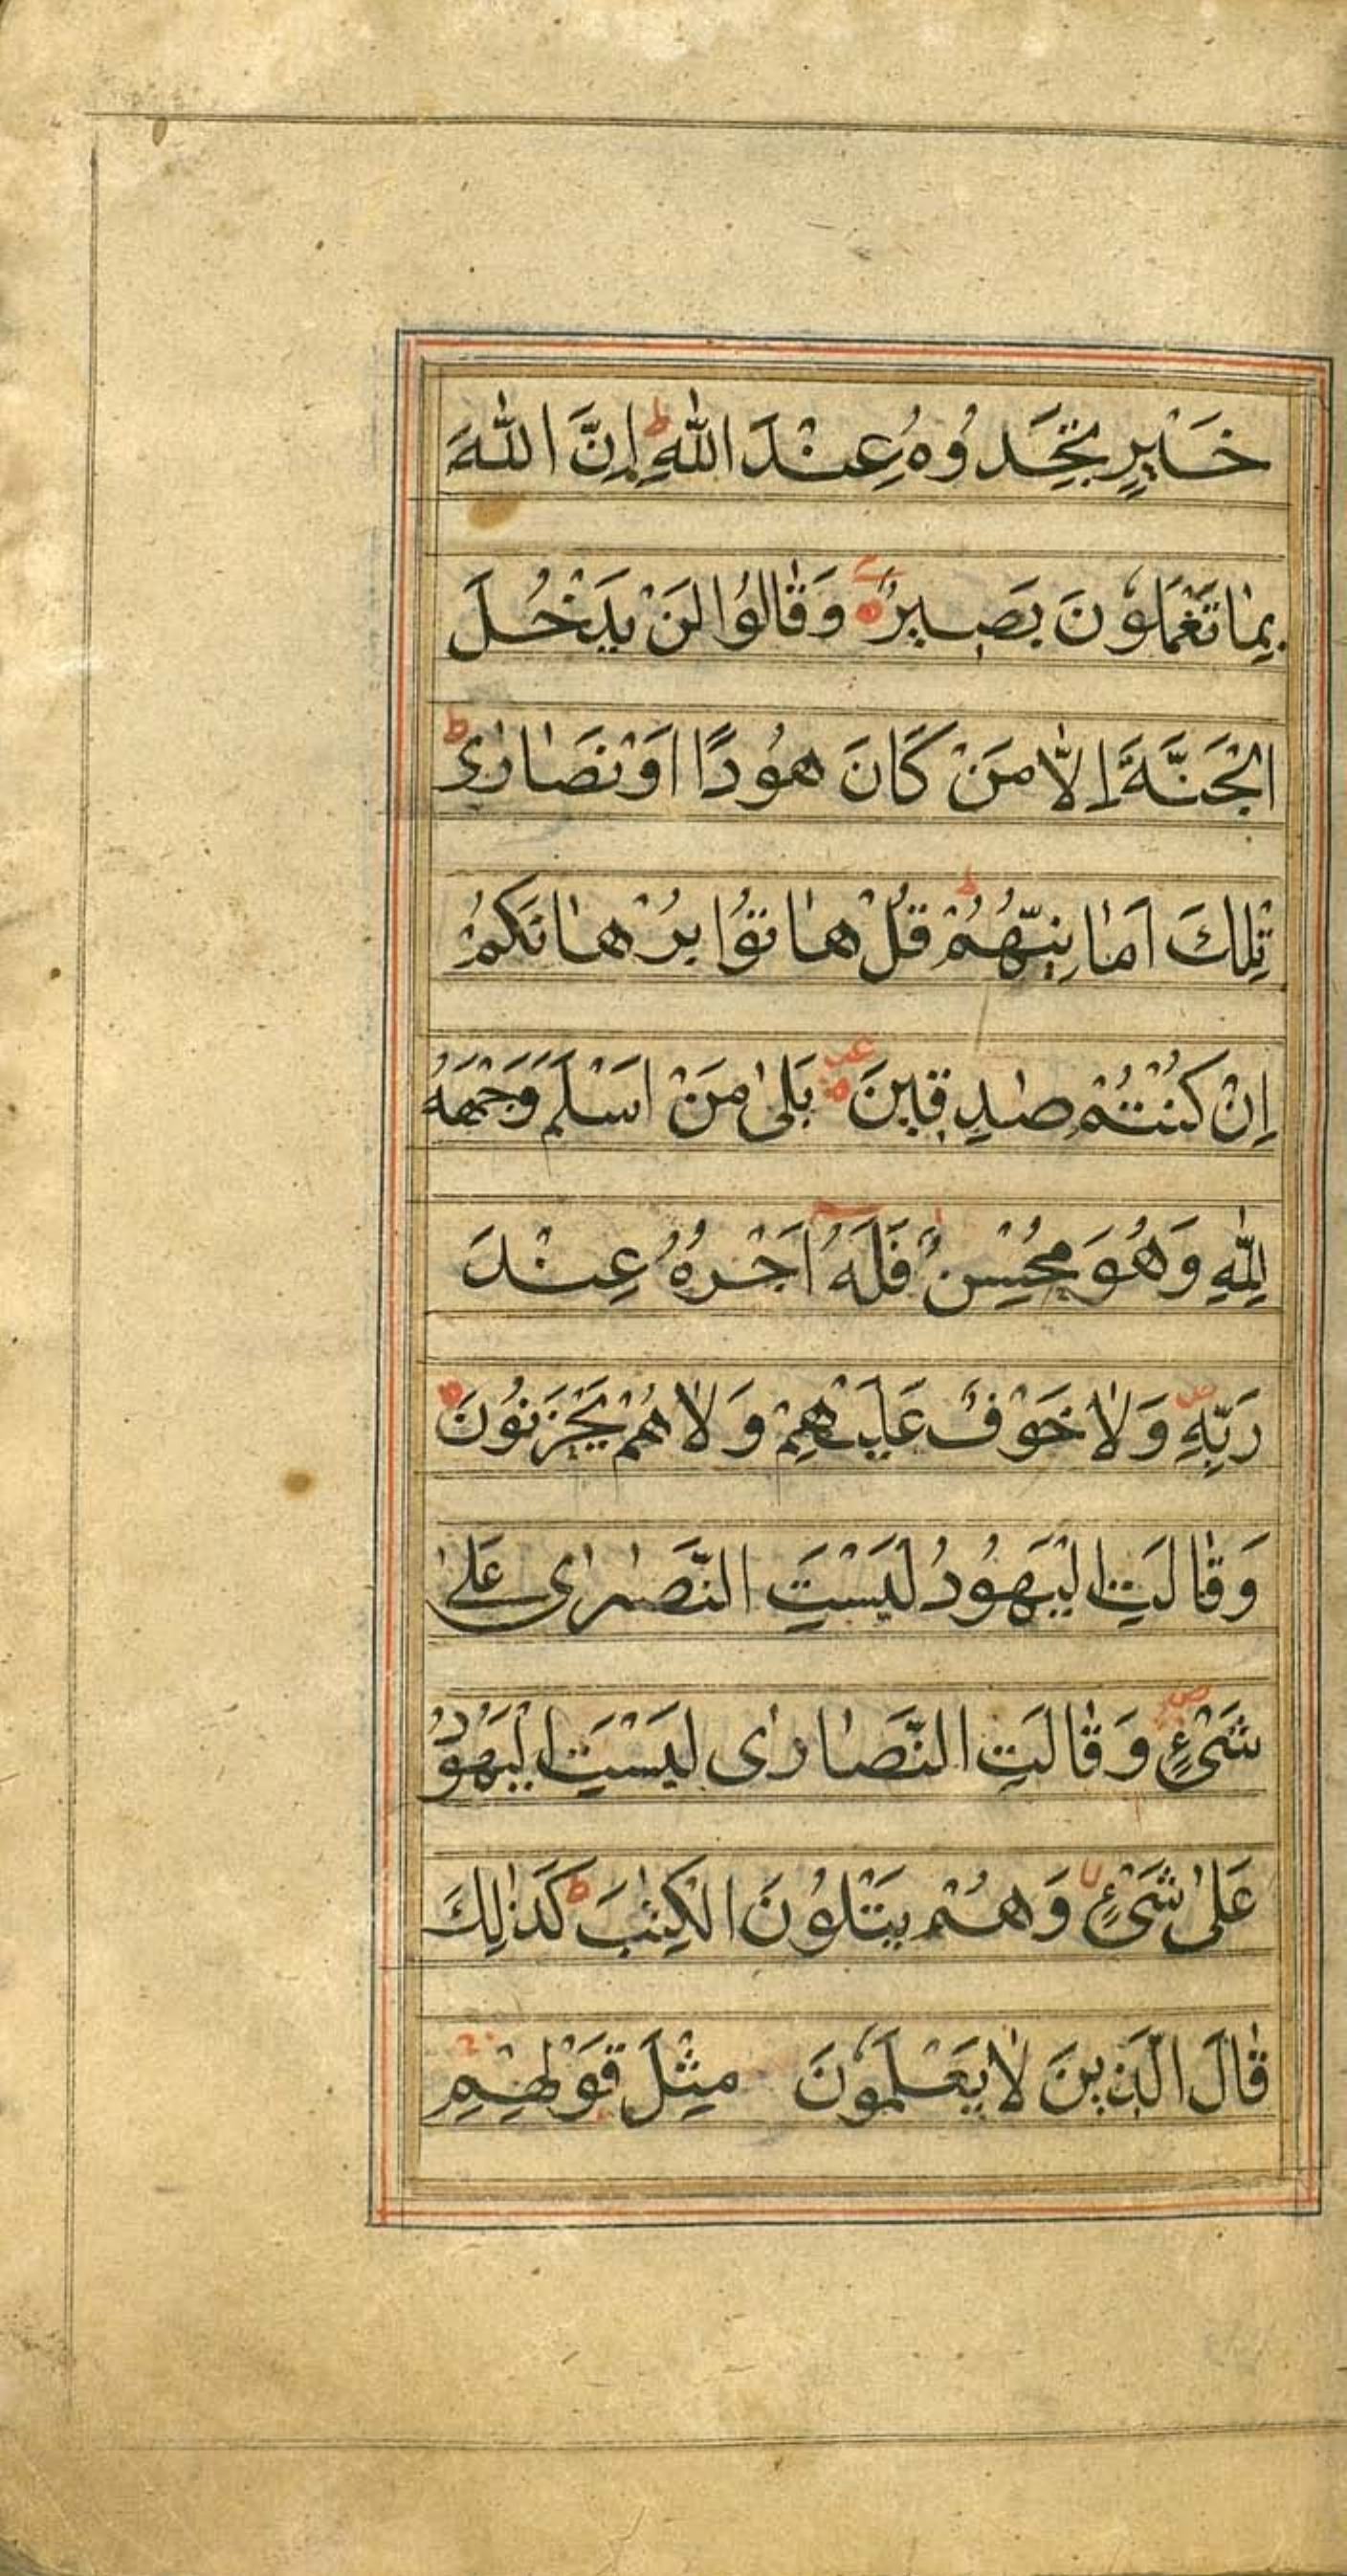 خَيْرٍ تَجِدُوهُ عِنْدَ اللّٰهِ ط اِنَّ اللّٰهَ
بِمٰا تَعْمَلُوْنَ بَصِيْرٌ وَقٰالُوْا لَنْ يَدْخُلَ
الْجَنَّةَ اِلّٰا مَنْ كٰانَ هُوْدًا اَوْ نَصٰارٰى ط
تِلْكَ اَمٰانِيُّهُمْ ط قُلْ هٰاتُوْا بُرْهٰانَكُمْ
اِنْ كُنْتُمْ صٰدِقِيْنَ بَلٰى مَنْ اَسْلَمَ وَجْهَهُ
لِلّٰهِ وَهُوَ مُحْسِنٌ فَلَهُ اَجْرُهُ عِنْدَ
رَبِّهِ وَلٰا خَوْفٌ عَلَيْهِمْ وَلٰا هُمْ يَحْزَنُوْنَ
وَقٰالَتِ الْيَهُوْدُ لَيْسَتِ النَّصٰرٰى عَلٰى
شَىْءٍ ص وَقٰالَتِ النَّصٰارٰى لَيْسَتِ الْيَهُوْدُ
عَلٰى شَىْءٍ لا وَهُمْ يَتْلُوْنَ الْكِتٰبَ ط كَذٰلِكَ
قٰالَ الَّذِيْنَ لٰا يَعْلَمُوْنَ مِثْلَ قَوْلِهِمْ